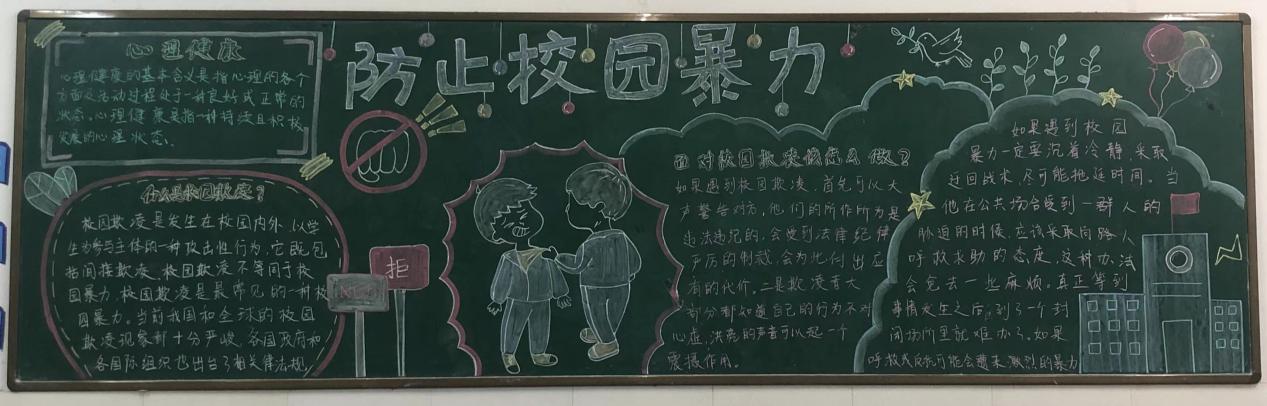 防止校园暴力
心理健康
心理健康的基本含义是指心理的各个
方面及活动过程处于一种良好或正常的
状态。心理健康是指一种持续且积极
发展的心理状态。
什么是校园欺凌？
校园欺凌是发生在校园内外，以学
生为参与主体的一种攻击性行为，它既包
括间接欺凌。校园欺凌不等同于校
园暴力，校园欺凌是最常见的一种校
园暴力。当前我国和全球的校园
欺凌现象都十分严峻，各国政府和
各国际组织也出台了相关律法规，
拒
面对校园欺凌该怎么做？
如果遇到校园欺凌，首先可以大
声警告对方，他们的所作所为是
违法违纪的，会受到法律纪律
严厉的制裁，会为此付出应
有的代价。二是欺凌者大
部分都知道自己的行为不对
心虚，洪亮的声音可以起一个
震摄作用。
如果遇到校园
暴力一定要沉着冷静，采取
迂回战术，尽可能拖延时间。当
他在公共场合受到一群人的
胁迫的时候，应该采取向路人
呼救求助的态度，这种办法
会免去一些麻烦。真正等到
事情发生之后，到了一个封
闭场所里就难办了。如果
呼救或反抗可能会遭来激烈的暴力